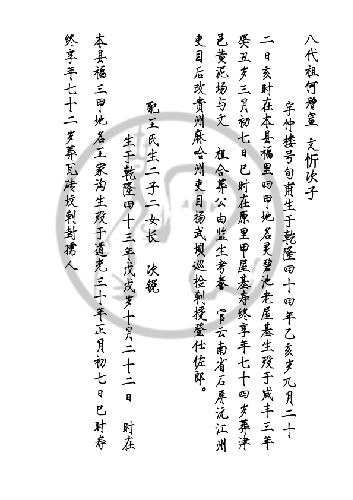 八代祖何增奎 文忻次子
字仲楼号旬甫生于乾隆四十四年乙亥岁九月二十
二日亥时在本县福里四甲地名灵碧池老屋基生殁于咸丰三年
癸丑岁三月初七日巳时在原里甲屋基寿终享年七十四岁葬津
邑黄泥场与文 祖合葬公由监生考眷 官云南省石屏沅江州
吏目后改贵州麻哈州吏目杨武坝巡检敕授登仕佐郎。
配王氏生二子二女长 次锐
生于乾隆四十三年戊戌岁十月二十二日 时在
本县福三甲地名王家沟生殁于道光三十年正月初七日巳时寿
终享年七十二岁葬瓦砖坟敕封孺人